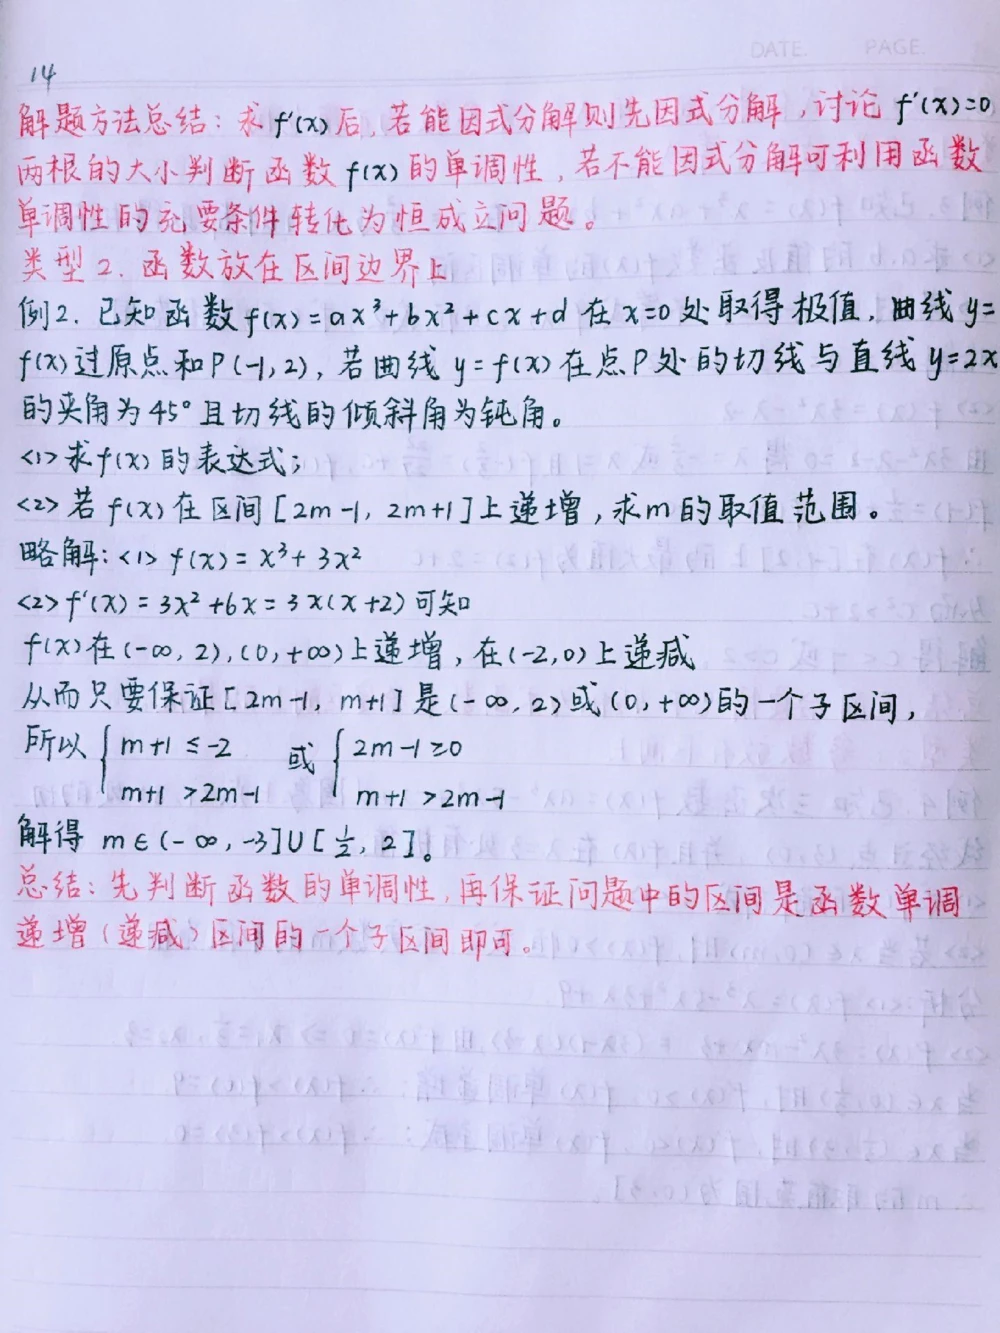 DATE. PAGE.
14
解题方法总结：求f'(x)后，若能因式分解则先因式分解，讨论f'(x)=0
两根的大小判断函数f(x)的单调性，若不能因式分解可利用函数
单调性的充要条件转化为恒成立问题。
类型2．函数放在区间边界上
例2．已知函数f(x)=ax³+bx²+cx+d在x=0处取得极值，曲线y=
f(x)过原点和P(-1,2)，若曲线y=f(x)在点P处的切线与直线y=2x
的夹角为45°且切线的倾斜角为钝角。
<1>求f(x)的表达式；
<2>若f(x)在区间[2m-1, 2m+1]上递增，求m的取值范围。
略解：<1> f(x)=x³+3x²
<2> f'(x)=3x²+6x=3x(x+2)可知
f(x)在(-∞, 2),(0,+∞)上递增，在(-2,0)上递减
从而只要保证[2m-1, m+1]是(-∞, 2)或(0,+∞)的一个子区间，
所以{m+1≤-2 或{2m-1≥0
m+1>2m-1 m+1>2m-1
解得 m∈(-∞,-3]∪[½, 2]。
总结：先判断函数的单调性，再保证问题中的区间是函数单调
递增（递减）区间的一个子区间即可。